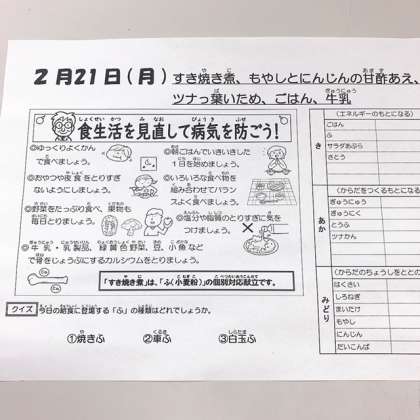 2月21日(月) すき焼き煮、もやしとにんじんの甘酢あえ、
ツナっ葉いため、ごはん、牛乳
食生活を見直して病気を防ごう!
◎ゆっくりよくかん
で食べましょう。
◎朝ごはんでいきいきした
1日を始めましょう。
◎おやつや夜食をとりすぎ
ないようにしましょう。
◎いろいろな食べ物を
組み合わせてバラン
スよく食べましょう。
◎野菜をたっぷり食べ、果物も
毎日とりましょう。
◎塩分や脂質のとりすぎに気を
つけましょう。
◎牛乳・乳製品、緑黄色野菜、豆、小魚など
で骨をじょうぶにするカルシウムをとりましょう。
Ca
Ca
「すき焼き煮」は、「ふ(小麦粉)」の個別対応献立です。
クイズ 今日の給食に登場する「ふ」の種類はどれでしょうか。
①焼きふ ②車ふ ③白玉ふ
き
(エネルギーのもとになる)
ごはん
ふ
サラダあぶら
さとう
あか
(からだをつくるもとになる
ぎゅうにゅう
ぎゅうにく
とうふ
ツナかん
みどり
(からだのちょうしをととの
はくさい
しろねぎ
まいたけ
もやし
にんじん
だいこんば